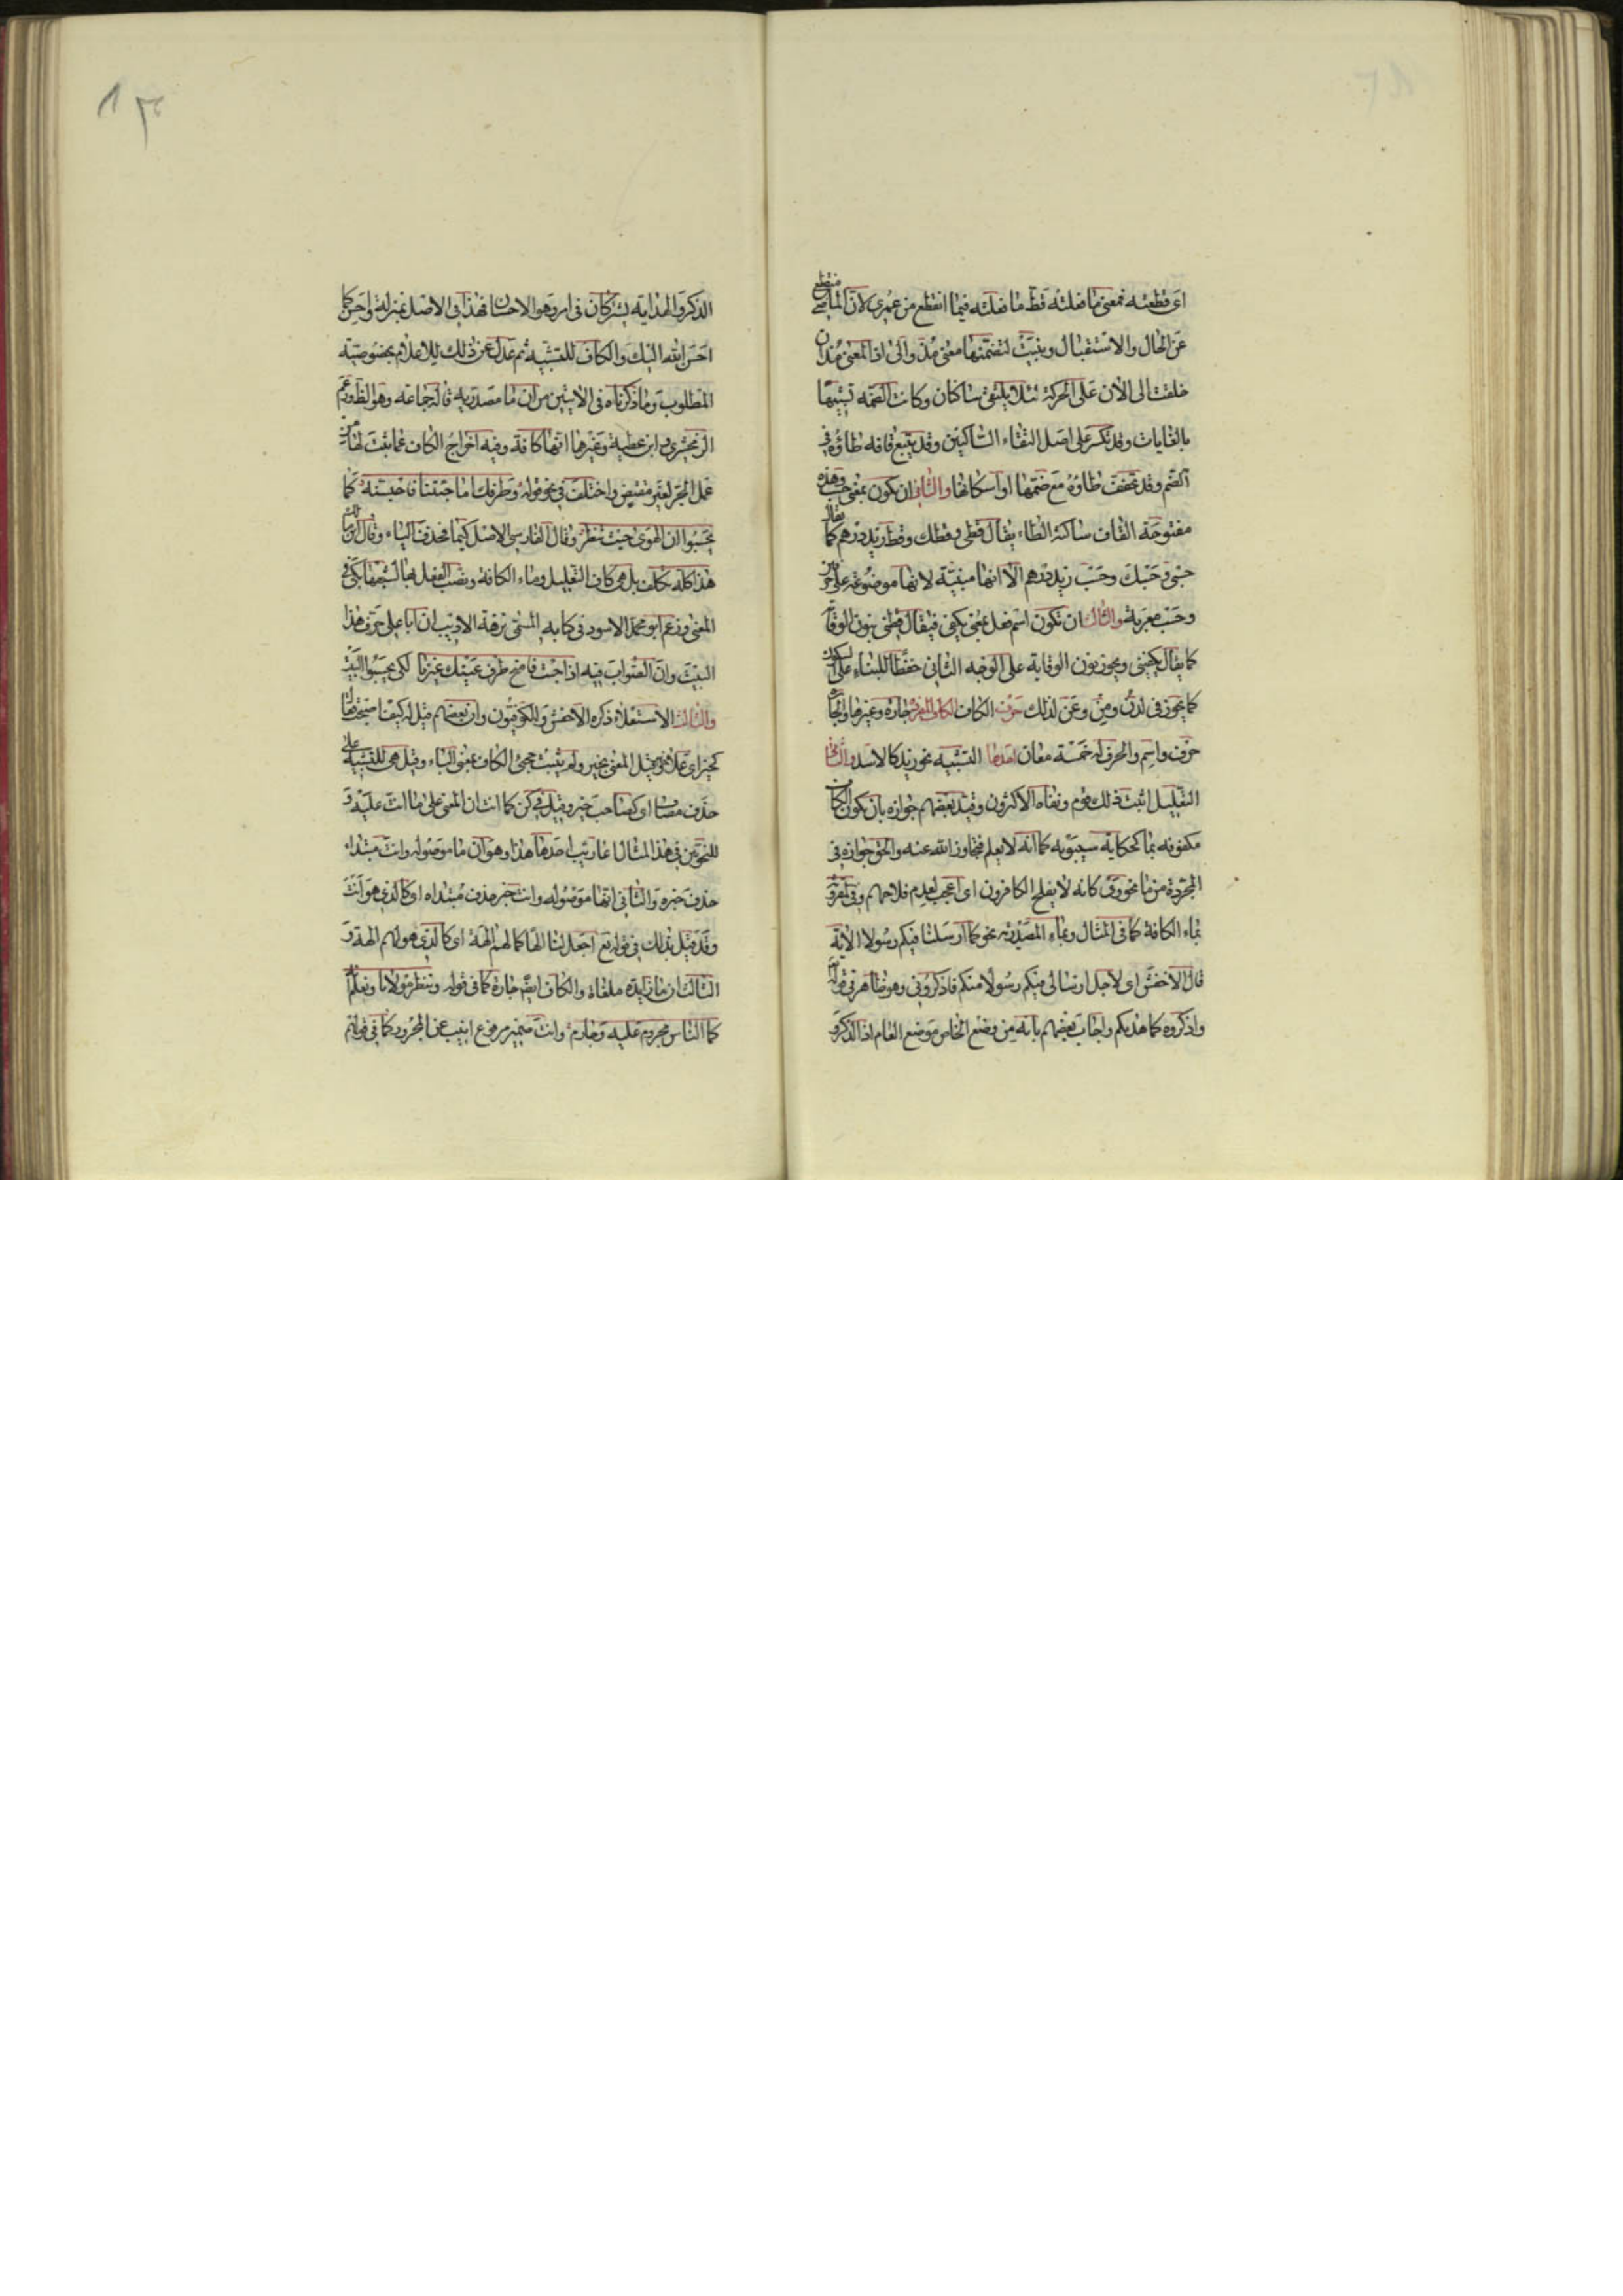 اى قطعته فمعنى ما فعلته قط ما فعلته فيما انقطع من عمرى لان الماضى منقطع
عن الحال والاستقبال وبنيت لتضمنها معنى مذ والى اذ المعنى مذ ان
خلقت الى الان على الحركة لئلا يلتقى ساكنان وكانت الضمة تشبيها
بالغايات وقد تكسر على اصل التقاء الساكنين وقد يتبع قافه طاؤه فى
الضم وقد تخفف طاؤه مع ضمها او اسكانها والثانى ان تكون بمعنى حسب وهذه
مفتوحة القاف ساكنة الطاء يقال قطى وقطك وقط زيد درهم كما يقال
حسبى وحسبك وحسب زيد درهم الا انها مبنية لانها موضوعة على حرفين
وحسب معربة والثالث ان تكون اسم فعل بمعنى يكفى فيقال قطنى بنون الوقاية
كما يقال يكفينى ويجوز نون الوقاية على الوجه الثانى حفظا للبناء على السكون
كما يجوز فى لدن ومن وعن لذلك حرف الكاف الكاف المفردة جارة وغيرها والجارة
حرف واسم والحرف له خمسة معان احدها التشبيه نحو زيد كالاسد والثانى
التعليل اثبت ذلك قوم ونفاه الاكثرون وقيد بعضهم جوازه بان تكون الكاف
مكفوفة بما كحكاية سيبويه كما انه لا يعلم فتجاوز الله عنه والحق جوازه فى
المجردة من ما نحو وى كانه لا يفلح الكافرون اى اعجب لعدم فلاحهم وفى المقرونة
بماء الكافة كما فى المثال وبماء المصدرية نحو كما ارسلنا فيكم رسولا الاية
قال الاخفش اى لاجل ارسالى فيكم رسولا منكم فاذكرونى وهو ظاهر فى قوله تع
واذكروه كما هديكم واجاب بعضهم بانه من وضع الخاص موضع العام اذ الذكر و
الذكر والهداية يشتركان فى امر وهو الاحسان فهذا فى الاصل بمنزلة واحسن كما
احسن الله اليك والكاف للتشبيه ثم عدل عن ذلك للاعلام بخصوصية
المطلوب وما ذكرناه فى الايتين من ان ما مصدرية قاله جماعة وهو الظ وزعم
الزمخشرى وابن عطية وغيرهما انها كافة وفيه اخراج الكاف عما ثبت لها من
عمل الجر لغير مقتض واختلف فى نحو قوله وطرفك اما جئتنا فاحبسنه كما
يحسبوا ان الهوى حيث تنظر وقال الفارسى الاصل كيما فحذف الياء وقال ابن مالك
هذا تكلف بل هى كاف التعليل وماء الكافة ونصب الفعل بها لشبهها بكى فى
المعنى وزعم ابو محمد الاسود فى كتابه المسمى نزهة الاديب ان ابا على حرف هذا
البيت وان الصواب فيه اذا جئت فامنح طرف عينيك غيرنا لكى يحسبوا البيت
والثالث الاستعلاء ذكره الاخفش والكوفيون وان بعضهم قيل له كيف اصبحت قال
كخير اى على خير وقيل المعنى بخير ولم يثبت مجئ الكاف بمعنى الباء وقيل هى للتشبيه على
حذف مضاف اى كصاحب خير وقيل فى كن كما انت ان المعنى على ما انت عليه و
للنحويين فى هذا المثال اعاريب احدها هذا وهو ان ما موصولة وانت مبتداء
حذف خبره والثانى انها موصولة وانت خبر حذف مبتداه اى كالذى هو انت
وقد قيل بذلك فى قوله تع اجعل لنا الها كما لهم الهة اى كالذى هو لهم الهة و
الثالث ان ما زايدة ملغاة والكاف ايضا جارة كما فى قوله وننظر مولانا ونعلم انه
كما الناس مجروم عليه وجارم وانت ضمير مرفوع انيب عن المجرور كما فى قولهم